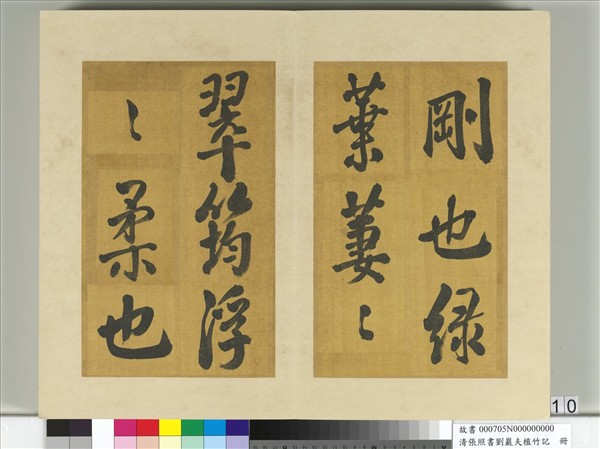 剛也緑
葉萋〻
翠筠浮
〻柔也
10
故書 000705N000000000
清張照書劉巖夫植竹記 冊